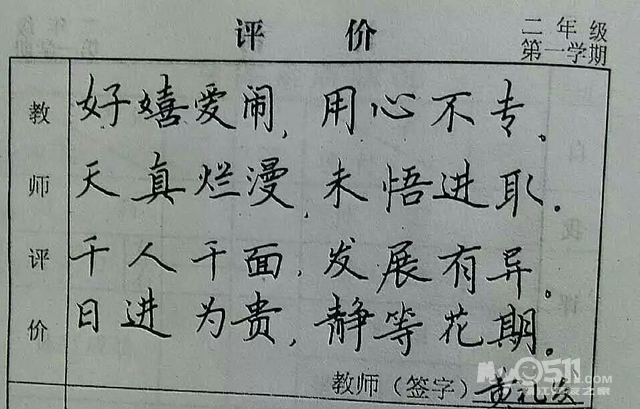 评 价
二年级
第一学期
教师评价
好嬉爱闹,用心不专。
天真烂漫,未悟进取。
千人千面,发展有异。
日进为贵,静等花期。
教师(签字)黄礼发